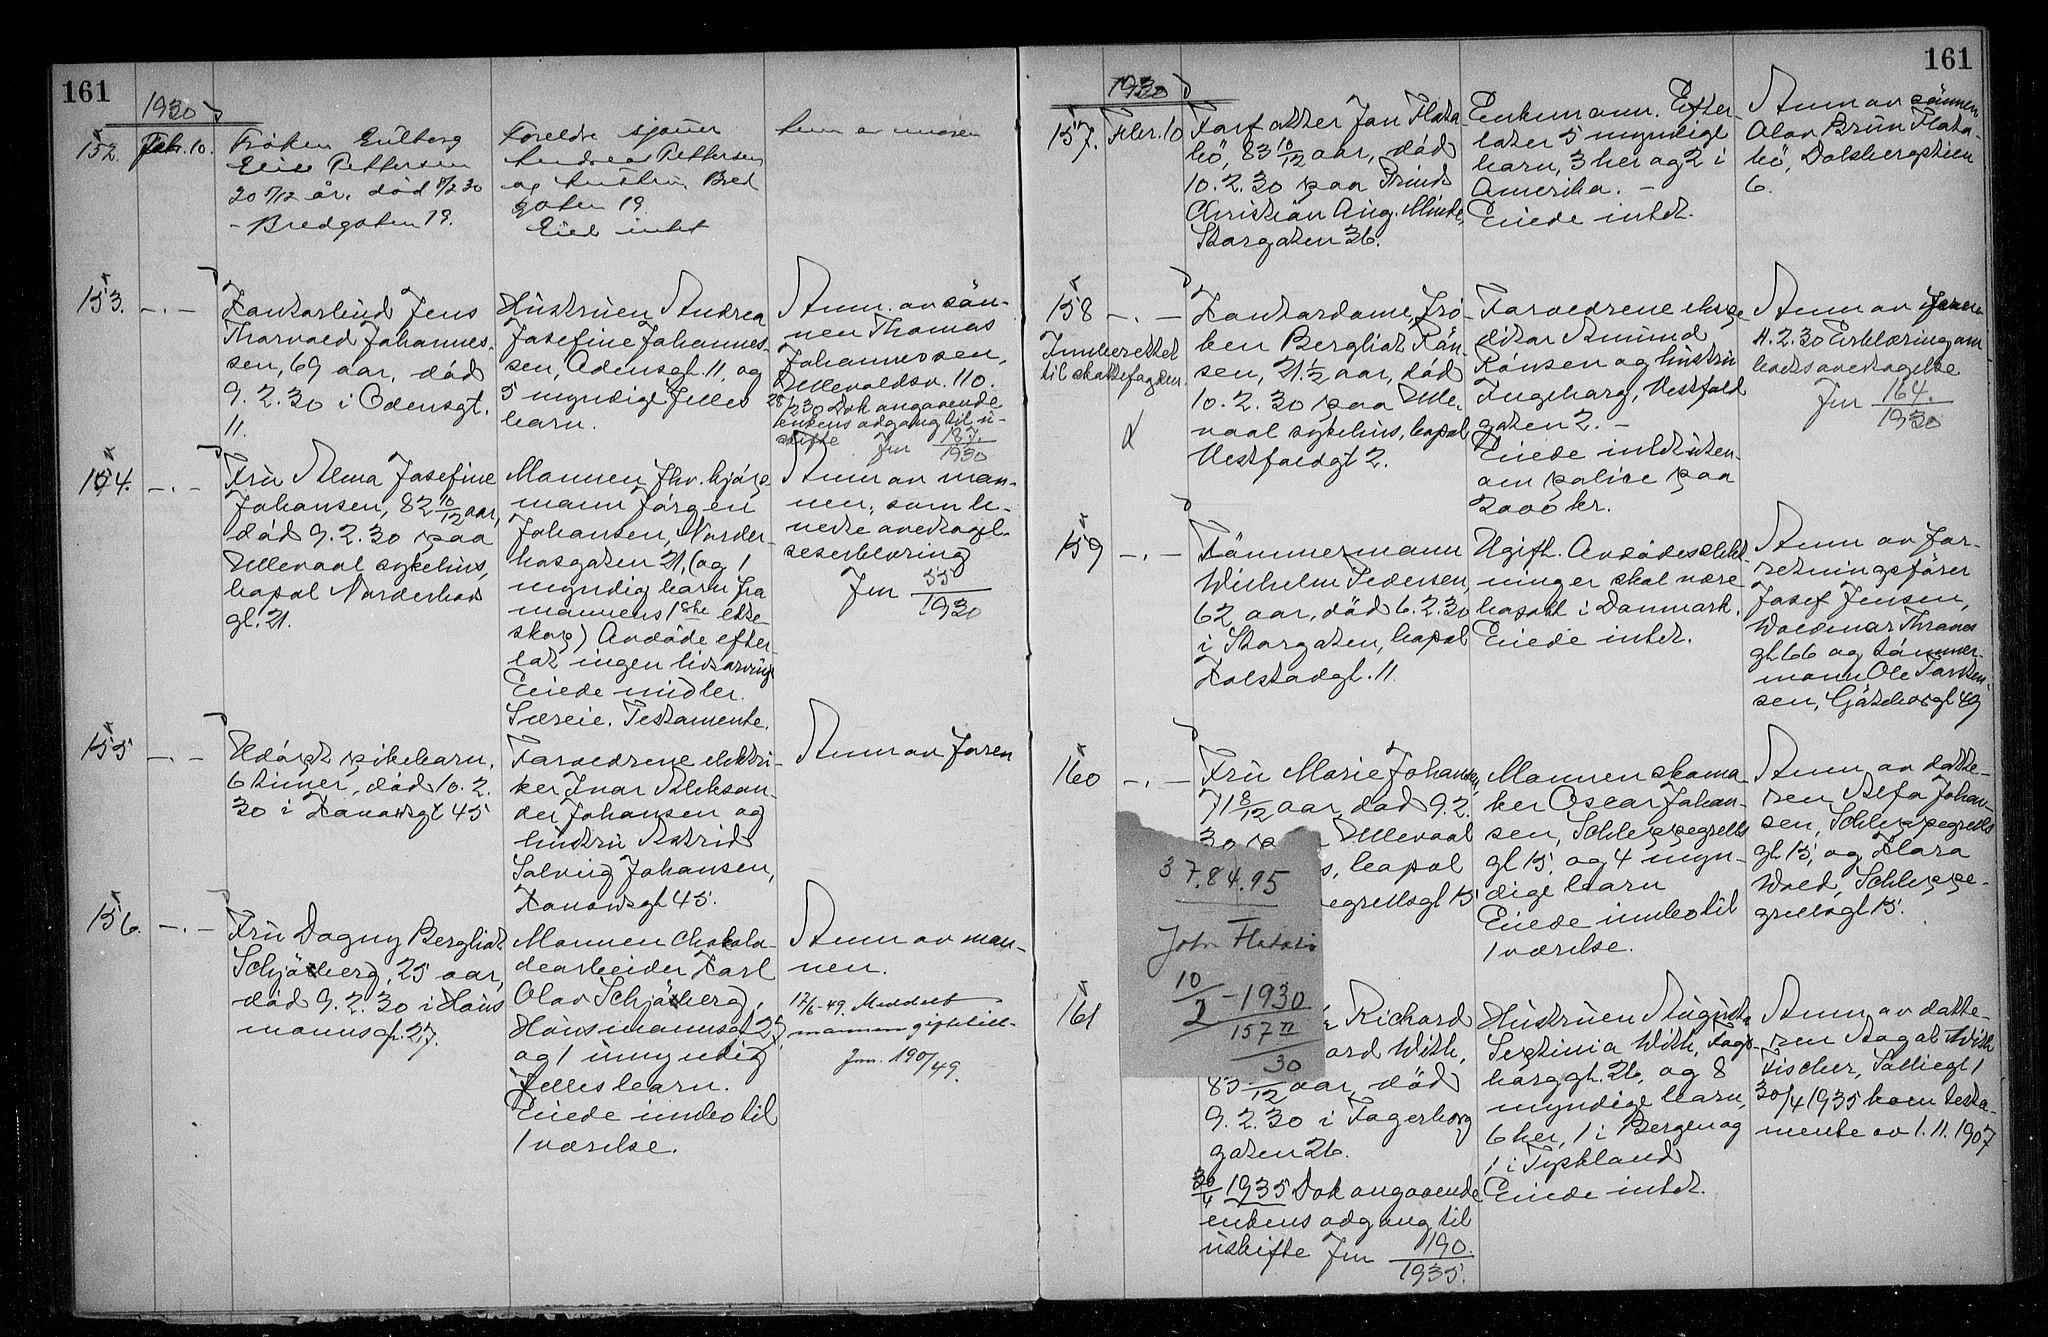 161
1930
152. Febr. 10.
Frøken Eulberg
Elise Pettersen
20 7/12 år, død 8/2 30
- Bredgaten 19.
Foreldre sjauer
Andreas Pettersen
og hustru Bred
gaten 19.
Eied intet
Anm av moren
153. -.-
Kontorbud Jens
Thorvald Johannes-
sen, 69 aar, død
9.2.30 i Odensgt.
11.
Hustruen Andrea
Josefine Johannes-
sen, Odensgt. 11, og
5 myndige felles
barn.
Anm. av søn-
nen Thomas
Johannessen,
Ullevoldsv. 110.
Dok angaaende
enkens adgang til u-
skifte Jnr 187.
1930
154. -.-
Fru Alma Josefine
Johansen, 82 10/12 aar,
død 9.2.30 paa
Ullevaal sykehus,
bopæl Norderhov
gt. 21.
Mannen fhv. kjøp
mann Jørgen
Johansen, Norder-
hovgaten 21, (og 1
myndig barn fra
mannens 1ste ekte-
skap) Avdøde efter-
lot ingen livsarving
Eiede midler.
Særeie. Testamente.
Anm av man-
nen, som be-
nedte overtagel-
seserklæring
Jnr 55
1930
155 -.-
Udøpt pikebarn,
6 timer, død 10.2.
30 i Kanonsgt 45
Forældrene elektri-
ker Ivar Aleksan-
der Johansen og
hustru Astrid
Solveig Johansen,
Kanonsgt 45.
Anm av faren
156. -.-
Fru Dagny Bergliot
Schjøtberg, 25 aar,
død 9.2.30 i Haus
mannsgt. 27.
Mannen chokola-
dearbeider Karl
Olav Schjøtberg,
Hausmannsgt 27,
og 1 umyndig
felles barn.
Eiede innbo til
1 værelse.
Anm av man-
nen.
17/6-49. Meddelt
mannen giftetill-
Jnr. 190/49.
161
1930
157. Febr. 10
Forfatter Jon Flata-
bø, 83 10/12 aar, død
10.2.30 paa Prinds
Christian Aug. Minde,
Storgaten 36.
Enkemann. Efter-
later 5 myndige
barn, 3 her og 2 i
Amerika. -
Eiede intet.
Anm av sønnen
Olav Brun Flata-
bø, Dalsbergstien
6.
158 -.-
Innberettet
til skattefogden
Kontordame, frø-
ken Bergliot Røn-
sen, 21 1/2 aar, død
10.2.30 paa Ulle-
vaal sykehus, bopæl
Vestfoldgt 2.
Forældrene ekspe
ditør Amund
Rønsen og hustru
Ingeborg, Vestfold
gaten 2. -
Eiede intet uten-
om police paa
2000 kr.
Anm av faren
Erklæring om
boets overtagelse
Jnr 164.
1930
159 -.-
Tømmermann
Wilhelm Pedersen,
62 aar, død 6.2.30
i Storgaten, bopæl
Kolstadgt. 11.
Ugift. Avdødes slekt-
ninger skal være
bosatt i Danmark.
Eiede intet.
Anm av for-
retningsfører
Josef Jensen,
Waldemar Thranes
gt 66 og tømmer-
mann Ole Torsten-
sen, Gøteborggt 49
160 -.-
Fru Marie Johansen,
71 8/12 aar, død 9.2.
30 Ullevaal
s, bopæl
egrellsgt 15
Mannen skoma-
ker Oscar Johan-
sen, Schleppegrells
gt 15, og 4 myn-
dige barn
Eiede innbo til
1 værelse.
Anm av datte-
ren Alfa Johan-
sen, Schleppegrells
gt. 15, og Klara
Wold, Schleppe-
grellsgt 15.
37.84.95
John Flatabø
10/2 - 1930
157 II
30
161
Richard
ord With,
83 /12 aar, død
9.2.30 i Fagerborg
gaten 26.
30/4 1935 Dok angaaende
enkens adgang til
uskifte Jnr 190.
1935.
Hustruen Augusta
Septinia With, Fager-
borggt. 26, og 8
myndige barn,
6 her, 1 i Bergen og
1 i Tyskland
Eiede intet.
Anm av datte-
ren Aagot With
Fischer, Solliegt 1
30/4 1935 kom testa-
mente av 1.11.1907